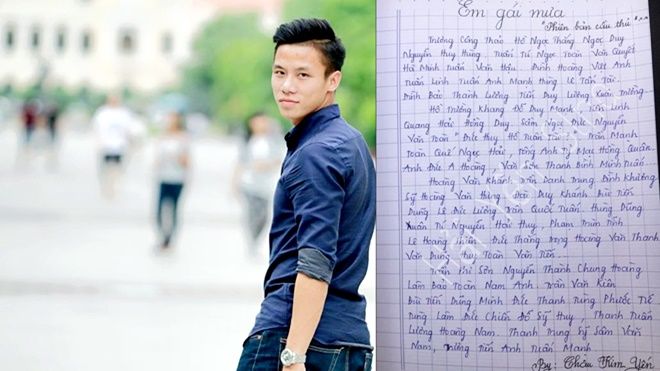 Em gái mưa
"Phiên bản cầu thủ"
Trương Công Thảo Hồ Ngọc Thắng Ngọc Duy
Nguyễn Huy Hùng, Tuấn Tú Ngọc Toàn Văn Quyết
Hà Minh Tuấn Văn Hậu. Đinh Hoàng Việt Anh
Tuấn Linh Tuấn Anh Mạnh Hùng Lê Tấn Tài
Đinh Bảo Thanh Lương Tiến Duy Lương Xuân Trường
Hồ Trương Khang Đỗ Duy Mạnh, Tiến Linh
Quang Hải Hùng Duy. Sầm Ngọc Đức Nguyễn
Văn Toàn Đức Huy Hồ Tuấn Tài Trần Mạnh
Toàn Quế Ngọc Hải, Tống Anh Tỷ Mạc Hồng Quân
Anh Đức A Hoàng Văn Thanh Bình Minh Tuấn
Hoàng Văn Khánh Danh Trung Đinh Khương
Sỹ Hoàng Văn Hùng Duy Khánh Bùi Tiến
Dũng Lê Đức Lương Trần Quốc Tuấn. Hùng Dũng
Xuân Nguyễn Hải Huy, Phạm Trùm Tỉnh
Lê Hoàng Đức Thắng Hoàng Văn Thanh
Văn Dũng Huy Toàn Văn Tiến
Trần Phi Sơn Nguyễn Thành Chung Hoàng
Lâm Bảo Toàn Nam Anh. Trần Văn Kiên
Bùi Tiến Dũng Minh Đức Thanh Tùng Phước Tứ
Tùng Lâm Đức Chiến Đỗ Sỹ Huy, Thanh Tuấn
Lương Hoàng Nam. Thanh Trung Sỹ Sâm Văn
Nam, Tiến Anh Tuấn Mạnh
By: Thêu Thim Yến